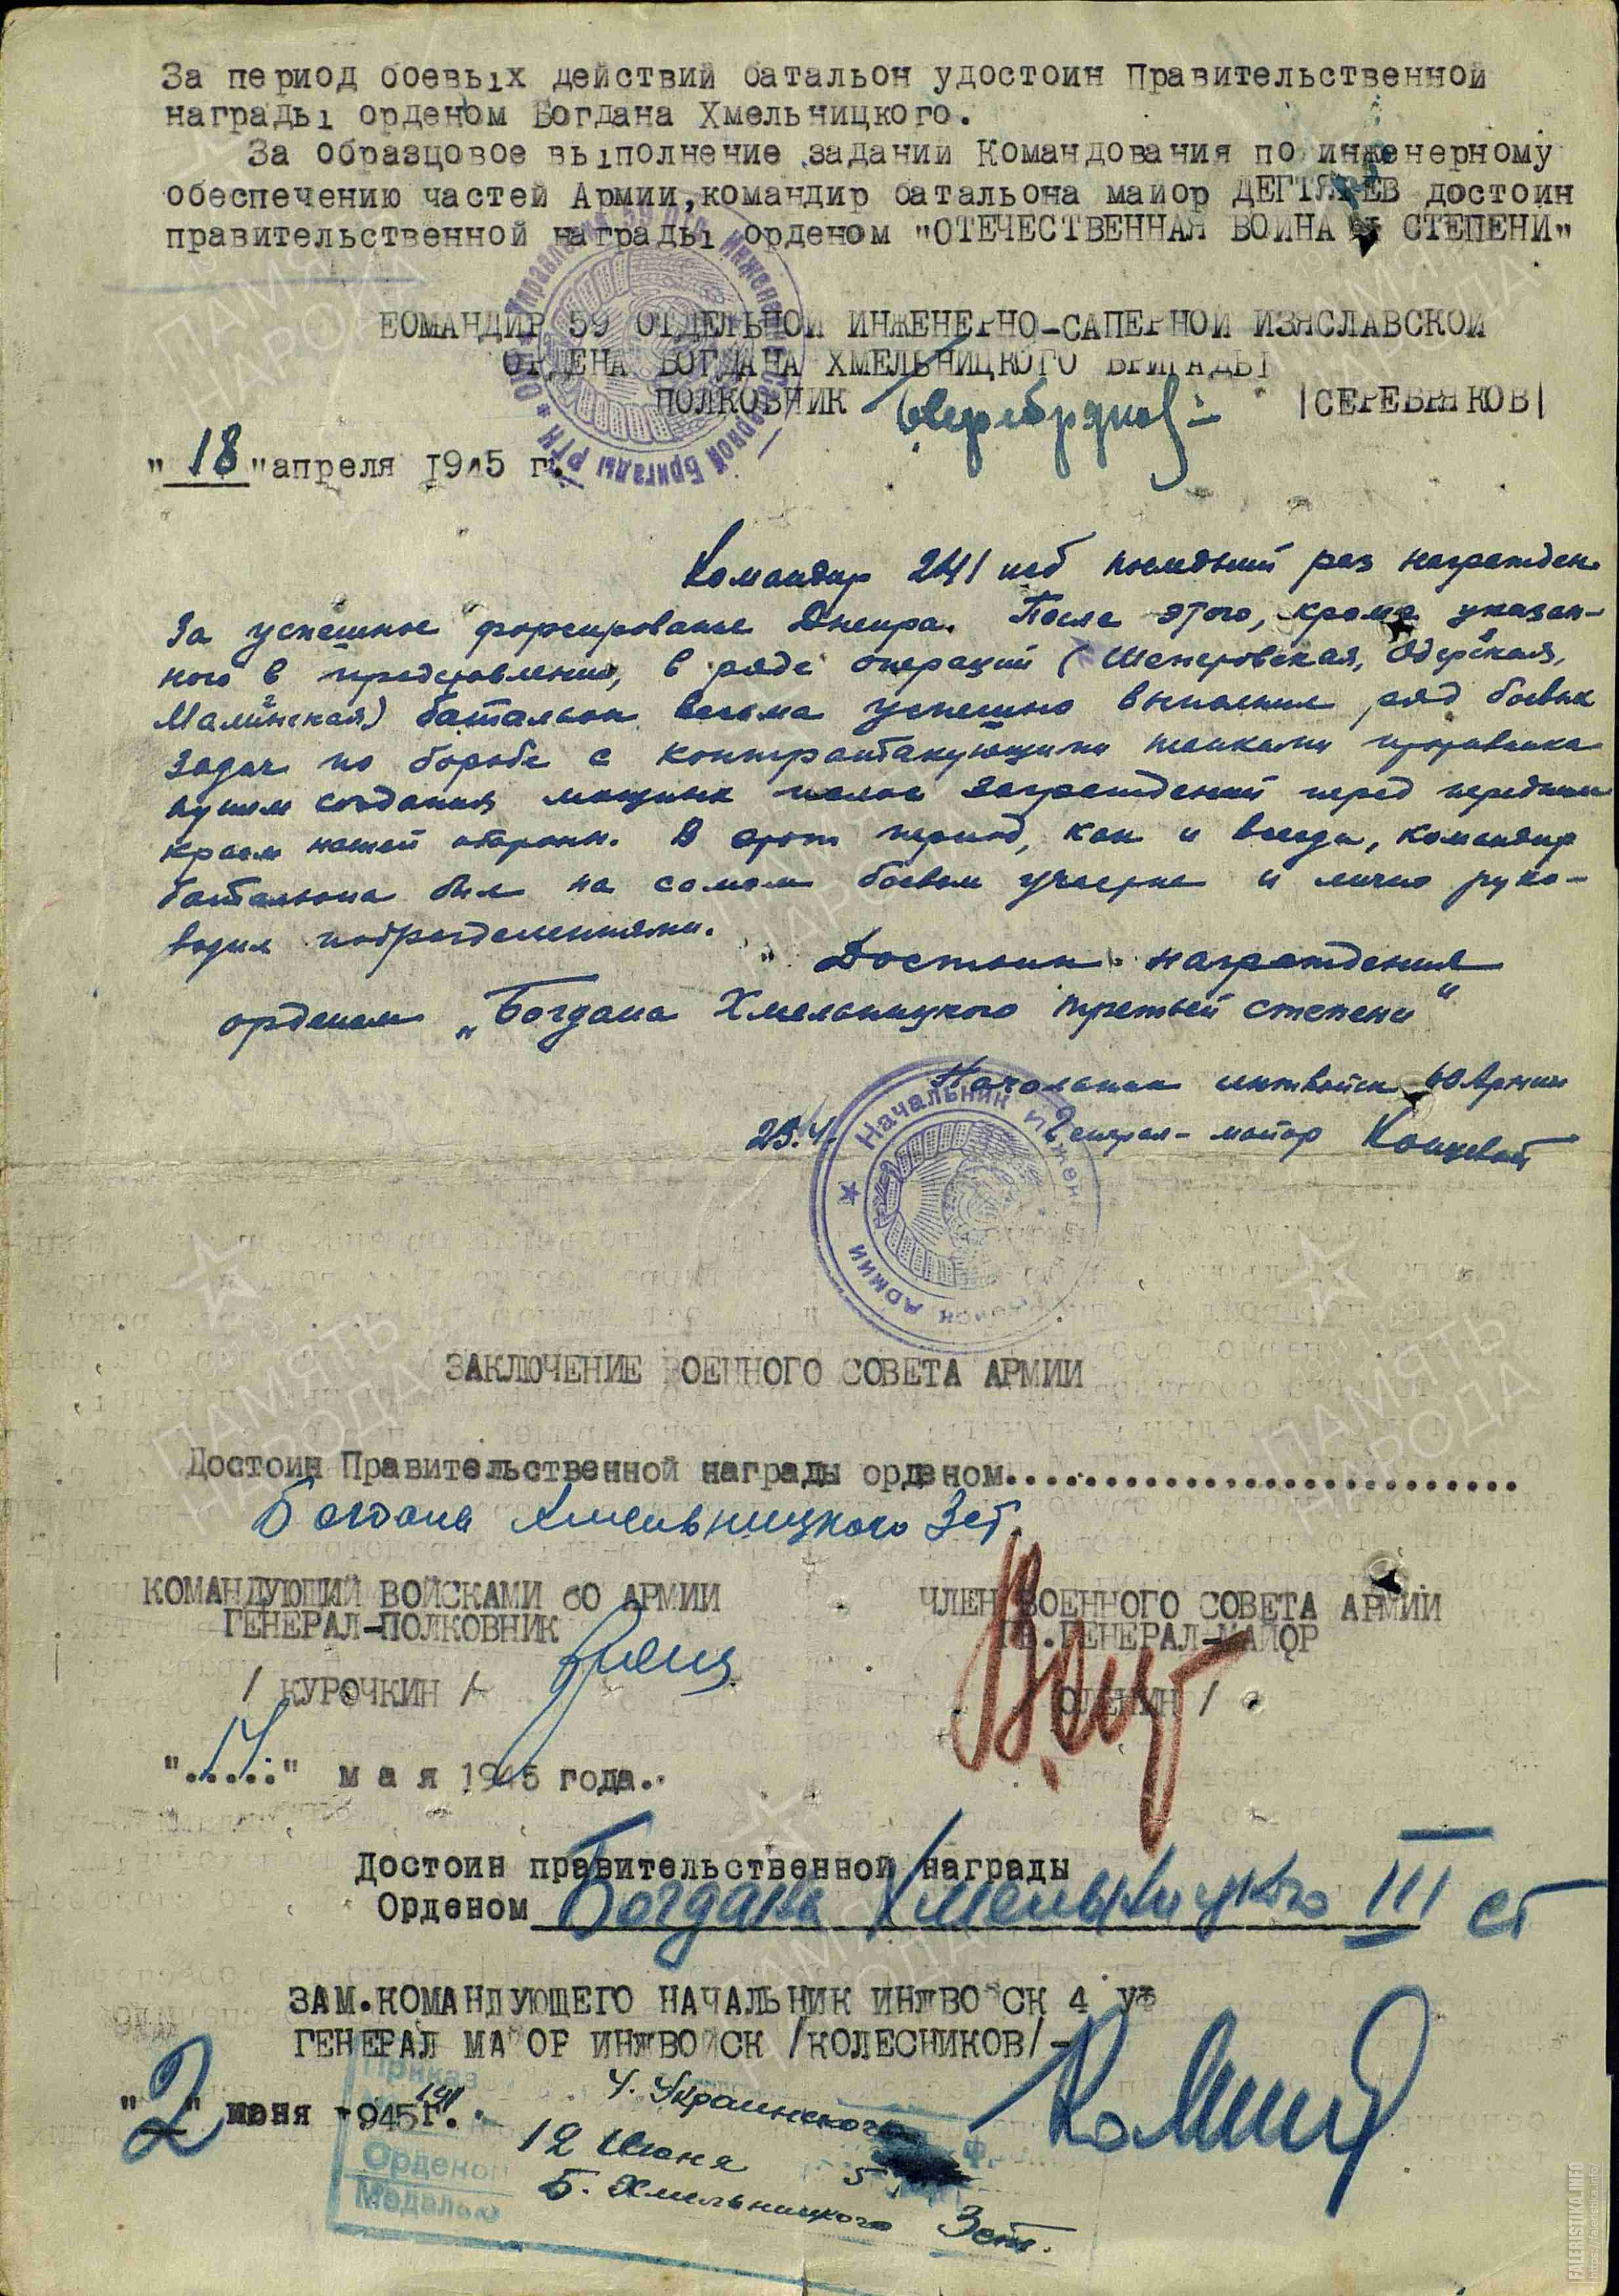 За период боевых действий батальон удостоин Правительственной
награды орденом Богдана Хмельницкого.
За образцовое выполнение заданий Командования по инженерному
обеспечению частей Армии, командир батальона майор ДЕГТЯРЕВ достоин
правительственной награды орденом "ОТЕЧЕСТВЕННАЯ ВОЙНА СТЕПЕНИ"
КОМАНДИР 59 ОТДЕЛЬНОЙ ИНЖЕНЕРНО-САПЕРНОЙ ИЗЯСЛАВСКОЙ
ОРДЕНА БОГДАНА ХМЕЛЬНИЦКОГО БРИГАДЫ
ПОЛКОВНИК |СЕРЕБРЯКОВ|
"18" апреля 1945 г.
Командир 241 исб последний раз награжден
за успешное форсирование Днепра. После этого, кроме указан-
ного в представлении, в ряде операций (Шепетовская, Одерская,
Малинская) батальон весьма успешно выполнил ряд боевых
задач по борьбе с контратакующими танками противника
путем создания мощных полос заграждений перед передним
краем нашей обороны. В этот период, как и всегда, командир
батальона был на самом боевом участке и лично руко-
водил подразделениями.
Достоин награждения
орденом „Богдана Хмельницкого третьей степени"
Начальник инжвойск 60 Армии
29.4. Генерал-майор
Начальник инжен войск Армии
ЗАКЛЮЧЕНИЕ ВОЕННОГО СОВЕТА АРМИИ
Достоин Правительственной награды орденом..............................
Богдана Хмельницкого 3 ст.
КОМАНДУЮЩИЙ ВОЙСКАМИ 60 АРМИИ
ГЕНЕРАЛ-ПОЛКОВНИК
/ КУРОЧКИН /
ЧЛЕН ВОЕННОГО СОВЕТА АРМИИ
ГВ.ГЕНЕРАЛ-МАЙОР
ОЛЕНИН /
"....." мая 1945 года.
Достоин правительственной награды
Орденом Богдана Хмельницкого III ст
ЗАМ.КОМАНДУЮЩЕГО НАЧАЛЬНИК ИНЖВОЙСК 4 УФ
ГЕНЕРАЛ МАЙОР ИНЖВОЙСК /КОЛЕСНИКОВ/
"2" июня 1945 г.
Приказ
4. Украинского
12 Июня 5
Орденом Б. Хмельницкого 3 ст.
Медалью
ПАМЯТЬ НАРОДА
FALERISTIKA.INFO
https://faleristika.info/